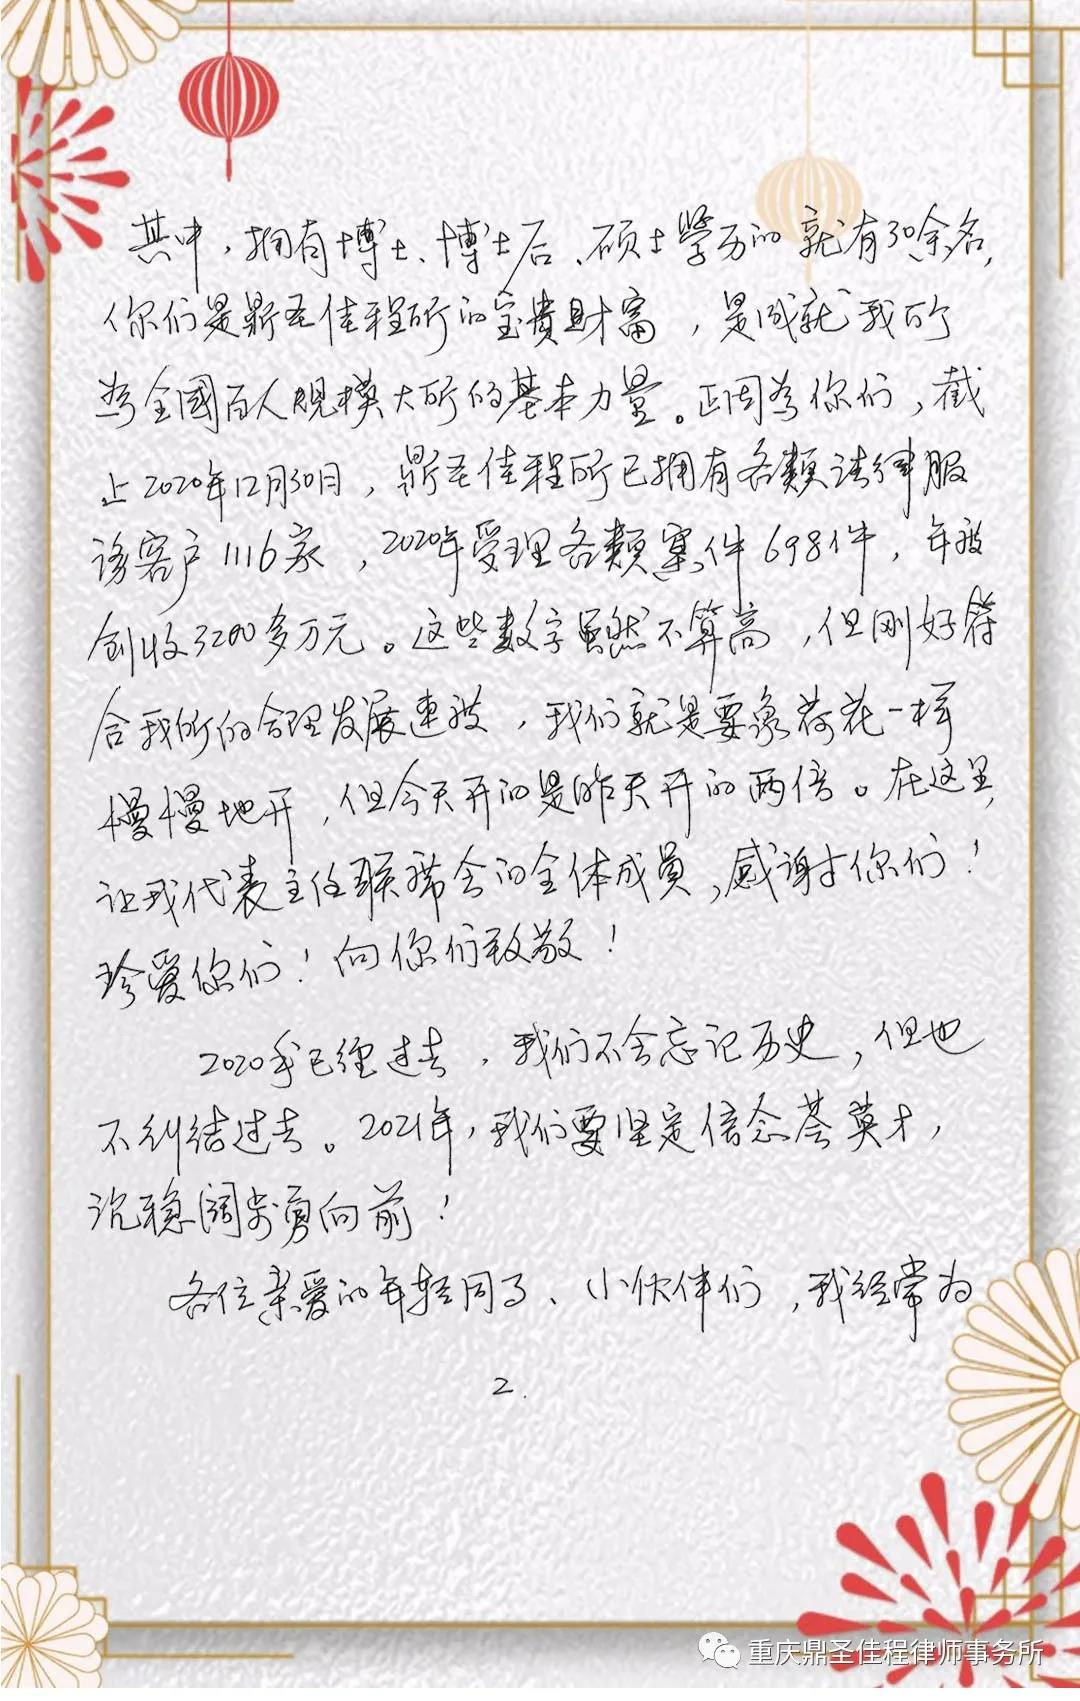 其中，拥有博士、博士后、硕士學历的就有30余名，
你们是鼎圣佳程所的宝貴財富，是成就我所
为全國百人规模大所的基本力量。正因为你们，截
止2020年12月30日，鼎圣佳程所已拥有各類法律服
务客户1116家，2020年受理各類案件698件，年度
创收3200多万元。这些数字虽然不算高，但刚好符
合我所的合理发展速度，我们就是要像荷花一样
慢慢地开，但今天开的是昨天开的两倍。在这里，
让我代表主任联席会的全体成員，感谢你们！
珍爱你们！向你们致敬！
2020年已经过去，我们不会忘记历史，但也
不纠结过去。2021年，我们要坚定信念荟英才，
沉稳阔步勇向前！
各位亲爱的年轻同事、小伙伴们，我经常为
2.
重庆鼎圣佳程律师事务所